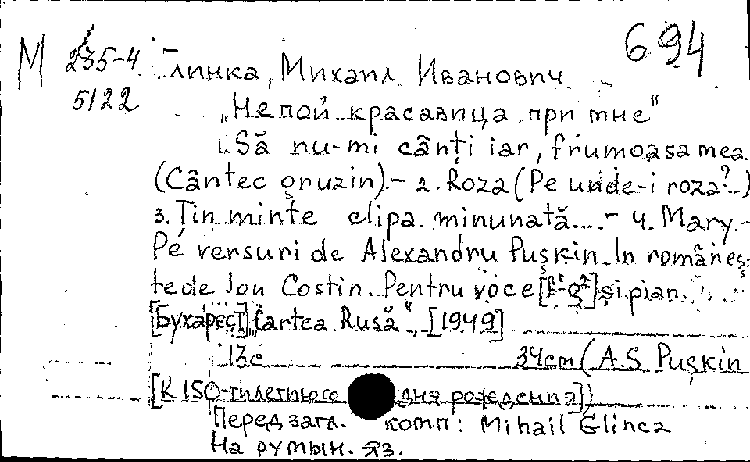 М 235-4 694
Глинка, Михаил Иванович
5122
„Не пой красавица при мне"
Să nu-mi cânți iar, frumoasa mea
(Cântec gruzin).- 2. Roza (Pe unde-i roza?..)
3. Țin minte clipa minunată...- 4. Mary.-
Pe versuri de Alexandru Pușkin. In româneș-
te de Ion Costin. Pentru voce și pian.
[Бухарест], „Cartea Rusă", [1949]
13c 34cm (A.S. Pușkin
[К 150-тилетию со дня рождения])
Перед загл. комп: Mihail Glinca
На румын. яз.